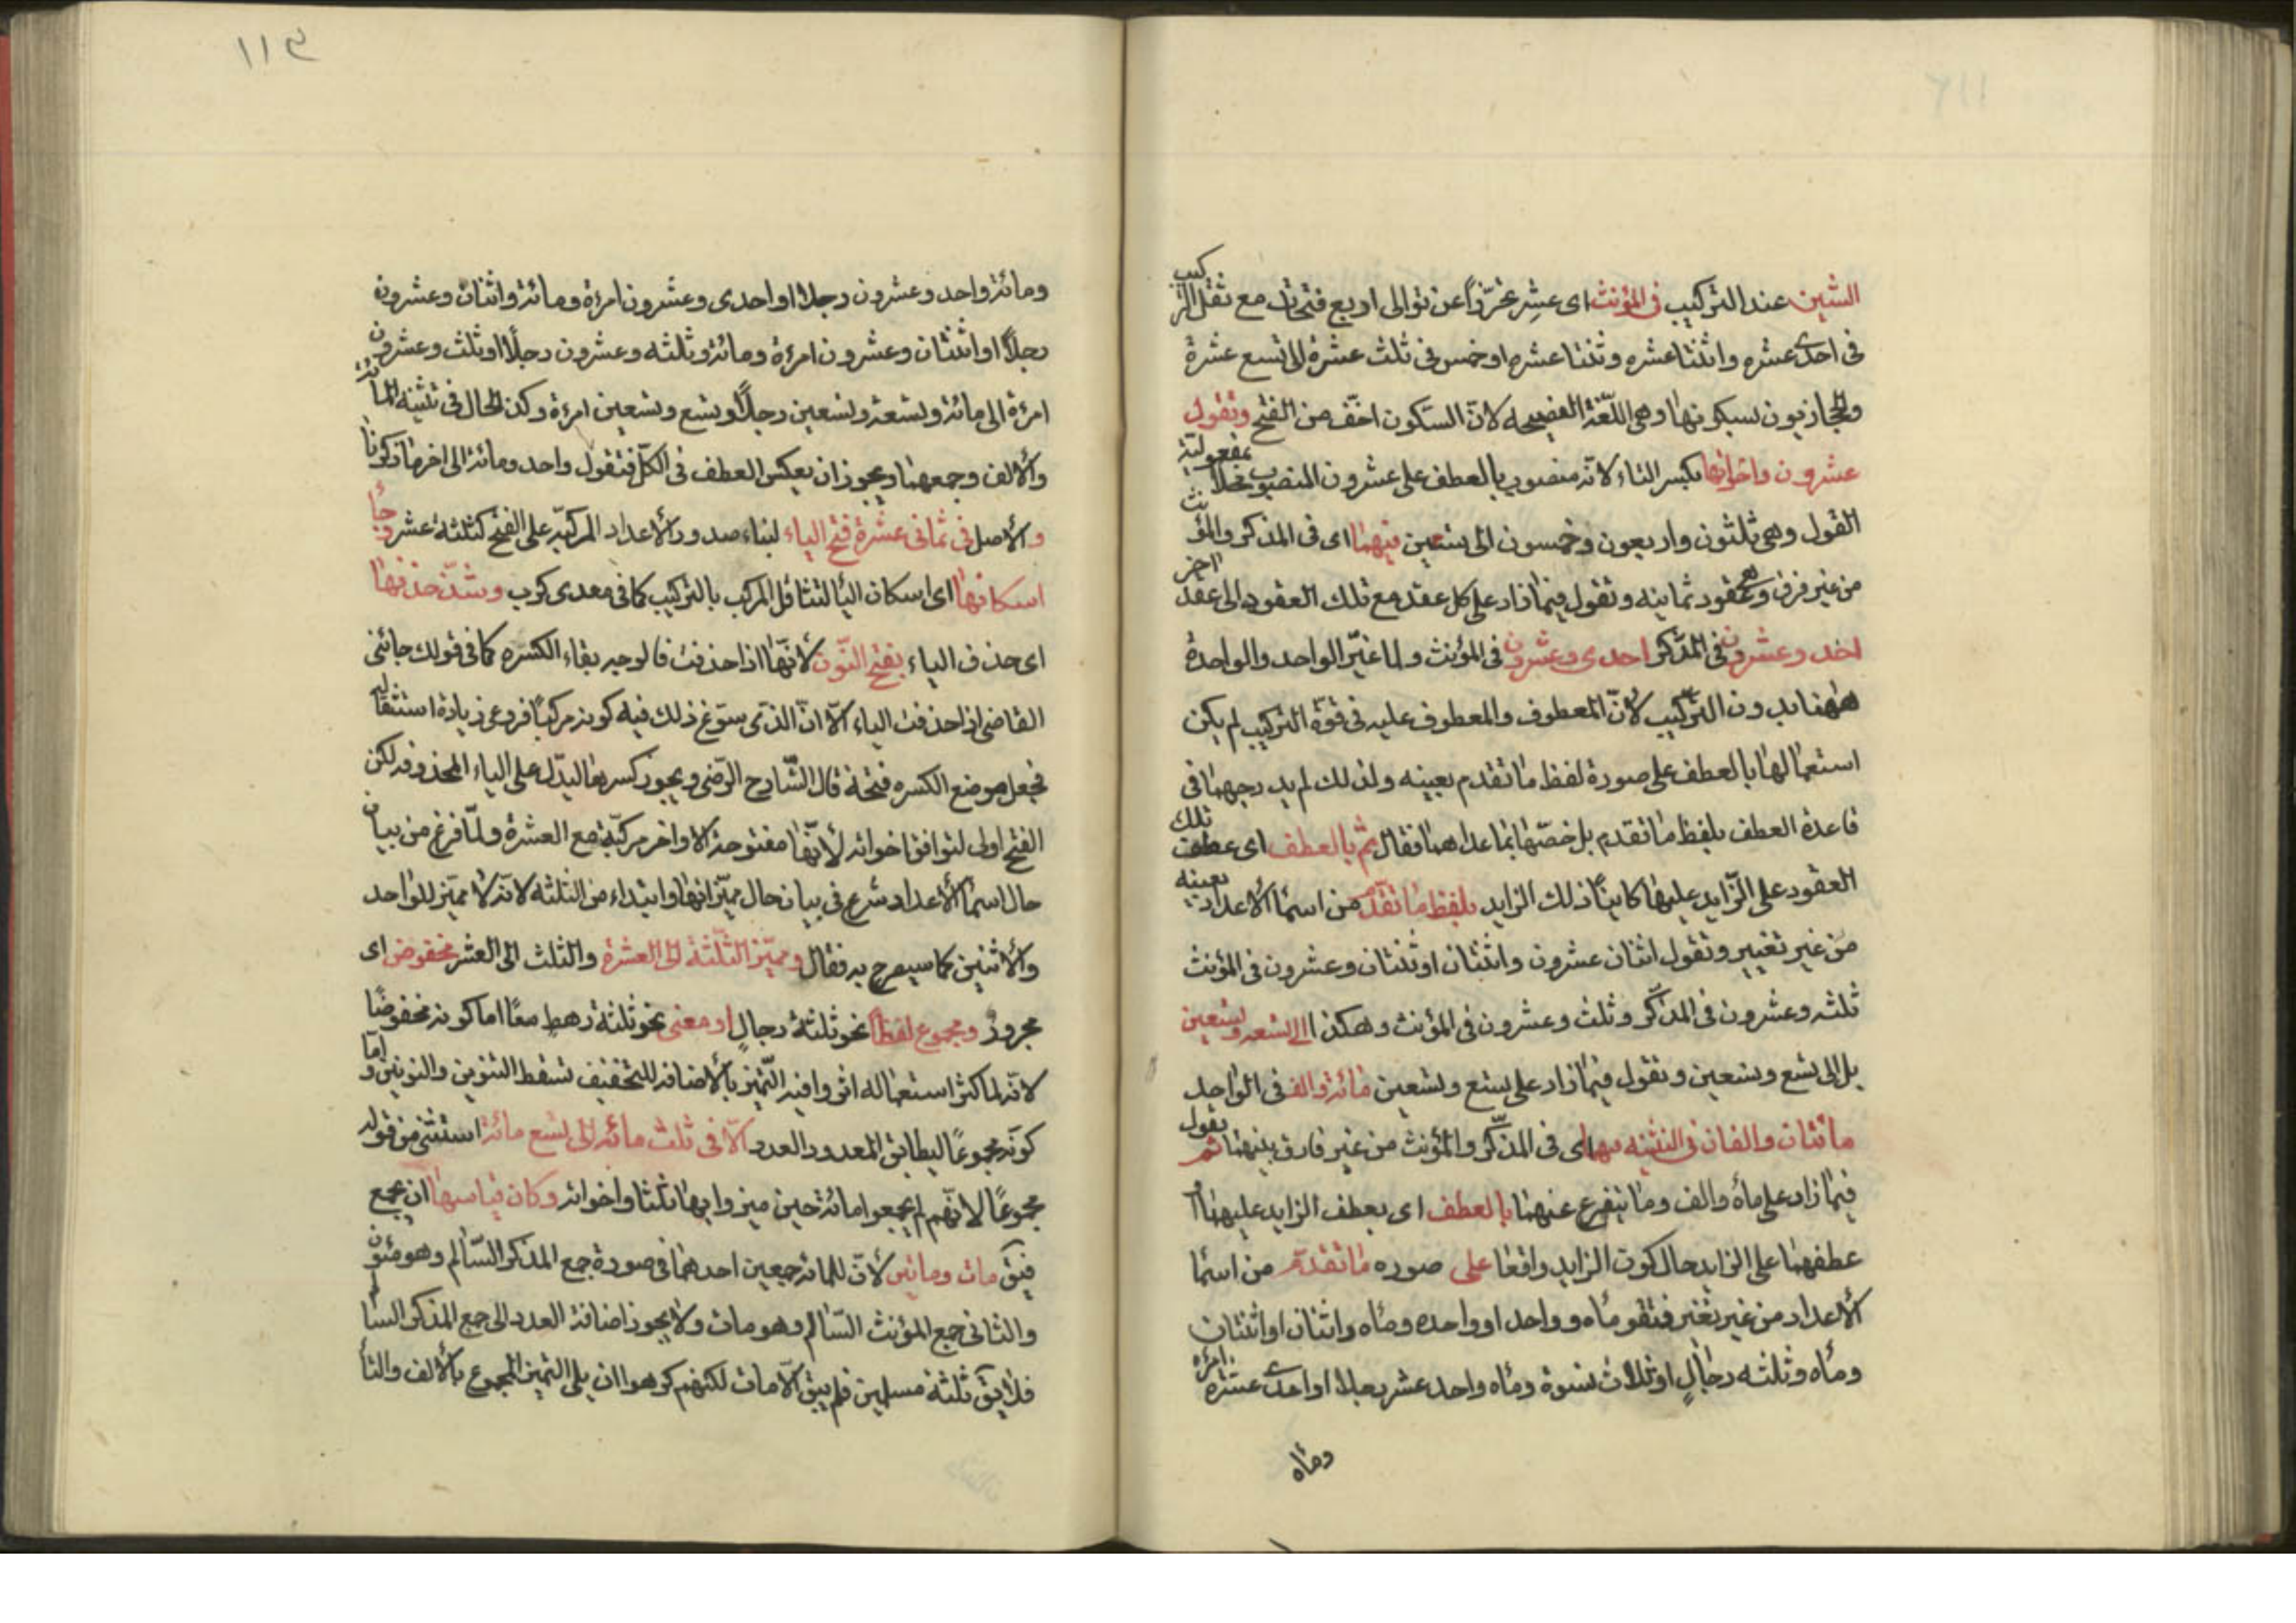 الشين عند التركيب في المؤنث اى عشر تحرزا عن توالى اربع فتحات مع ثقل التركيب
في احدى عشره واثنتا عشره وثنتا عشره او خمس في ثلث عشرة الى تسع عشرة
والحجازيون يسكونها وهى اللغة الفصيحه لان السكون اخف من الفتح وتقول
عشرون واخواتها بكسر التاء لانه منصوب بالعطف على عشرون المنصوب محلا بمفعولية
القول وهى ثلثون واربعون وخمسون الى تسعين فيهما اى في المذكر والمؤنث
من غير فرق وهى عقود ثمانيه وتقول فيما زاد على كل عقد مع تلك العقود الى عقد اخر
احد وعشرون في المذكر احدى وعشرون في المؤنث ولما غير الواحد والواحدة
ههنا بدون التركيب لان المعطوف والمعطوف عليه في قوة التركيب لم يكن
استعمالها بالعطف على صورة لفظ ما تقدم بعينه ولذلك لم يدرجهما في
قاعدة العطف بلفظ ما تقدم بل خصها بما عداهما فقال ثم بالعطف اى عطف تلك
العقود على الزايد عليها كاينا ذلك الزايد بلفظ ما تقدم من اسما الاعداد بعينه
من غير تغيير وتقول اثنان عشرون واثنتان او ثنتان وعشرون في المؤنث
ثلثه وعشرون في المذكر وثلث وعشرون في المؤنث وهكذا الى تسعه وتسعين
بل الى تسع وتسعين وتقول فيما زاد على تسع وتسعين مائة والف في الواحد
مائتان والفان في التثنيه فيهما اى في المذكر والمؤنث من غير فارق بينهما ثم تقول
فيما زاد على ماة والف وما يتفرع عنهما بالعطف اى بعطف الزايد عليهما او
عطفهما على الزايد حال كون الزايد واقعا على صوره ما تقدم من اسما
الاعداد من غير تغير فتقو ماه وواحد او واحده وماه واثنان او اثنتان
وماه وثلثه رجال او ثلاث نسوة وماه واحد عشر رجلا او احدى عشره امرءه
وماه
١١٣
ومائة واحد وعشرون رجلا او احدى وعشرون امرءة ومائة واثنان وعشرون
رجلا او اثنتان وعشرون امرءة ومائة وثلثه وعشرون رجلا او ثلث وعشرون
امرءة الى مائة وتسعة وتسعين رجلا وتسع وتسعين امرءة وكذا الحال في تثنيه المائة
والالف وجمعهما ويجوز ان يعكس العطف في الكل فتقول واحد ومائة الى اخر ما ذكرنا
والاصل في ثمانى عشرة فتح الياء لبناء صدور الاعداد المركبة على الفتح كثلثة عشر وجا
اسكانها اى اسكان اليا لتثاقل المركب بالتركيب كما في معدى كرب وشذ حذفها
اى حذف الياء بفتح النون لانها اذا حذفت فالوجه بقاء الكسره كما في قولك جائنى
القاضى اذا حذفت الياء الا ان الذى سوغ ذلك فيه كونه مركبا فروعى زيادة استثقاله
فجعل موضع الكسره فتحة قال الشارح الرضى ويجوز كسرها ليدل على الياء المحذوفه لكن
الفتح اولى لتوافق اخواته لانها مفتوحة الاواخر مركبة مع العشرة ولما فرغ من بيان
حال اسما الاعداد شرع في بيان حال مميزاتها وابتداء من الثلثه لانه لا مميز للواحد
والاثنين كما سيصرح به فقال ومميز الثلثة الى العشرة والثلث الى العشر مخفوض اى
مجرور ومجموع لفظا نحو ثلثة رجال او معنى نحو ثلثة رهط معا اما كونه مخفوضا
لانه لما كثر استعماله اثروا فيه التميز بالاضافه للتخفيف تسقط التنوين والنونين واما
كونه مجموعا ليطابق المعدود العدد الا في ثلث مائه الى تسع مائة استثنى من قوله
مجموعا لانهم لم يجمعوا مائة حين ميزوا بها ثلثا واخواته وكان قياسها ان يجمع
فيق مات ومائين لان للمائة جمعين احدهما في صورة جمع المذكر السالم وهو مئون
والثانى جمع المؤنث السالم وهو مات ولا يجوز اضافة العدد الى جمع المذكر السالم
فلا يق ثلثة مسلمين فلم يبق الا مات لكنهم كرهوا ان يلى التميز المجموع بالالف والتا